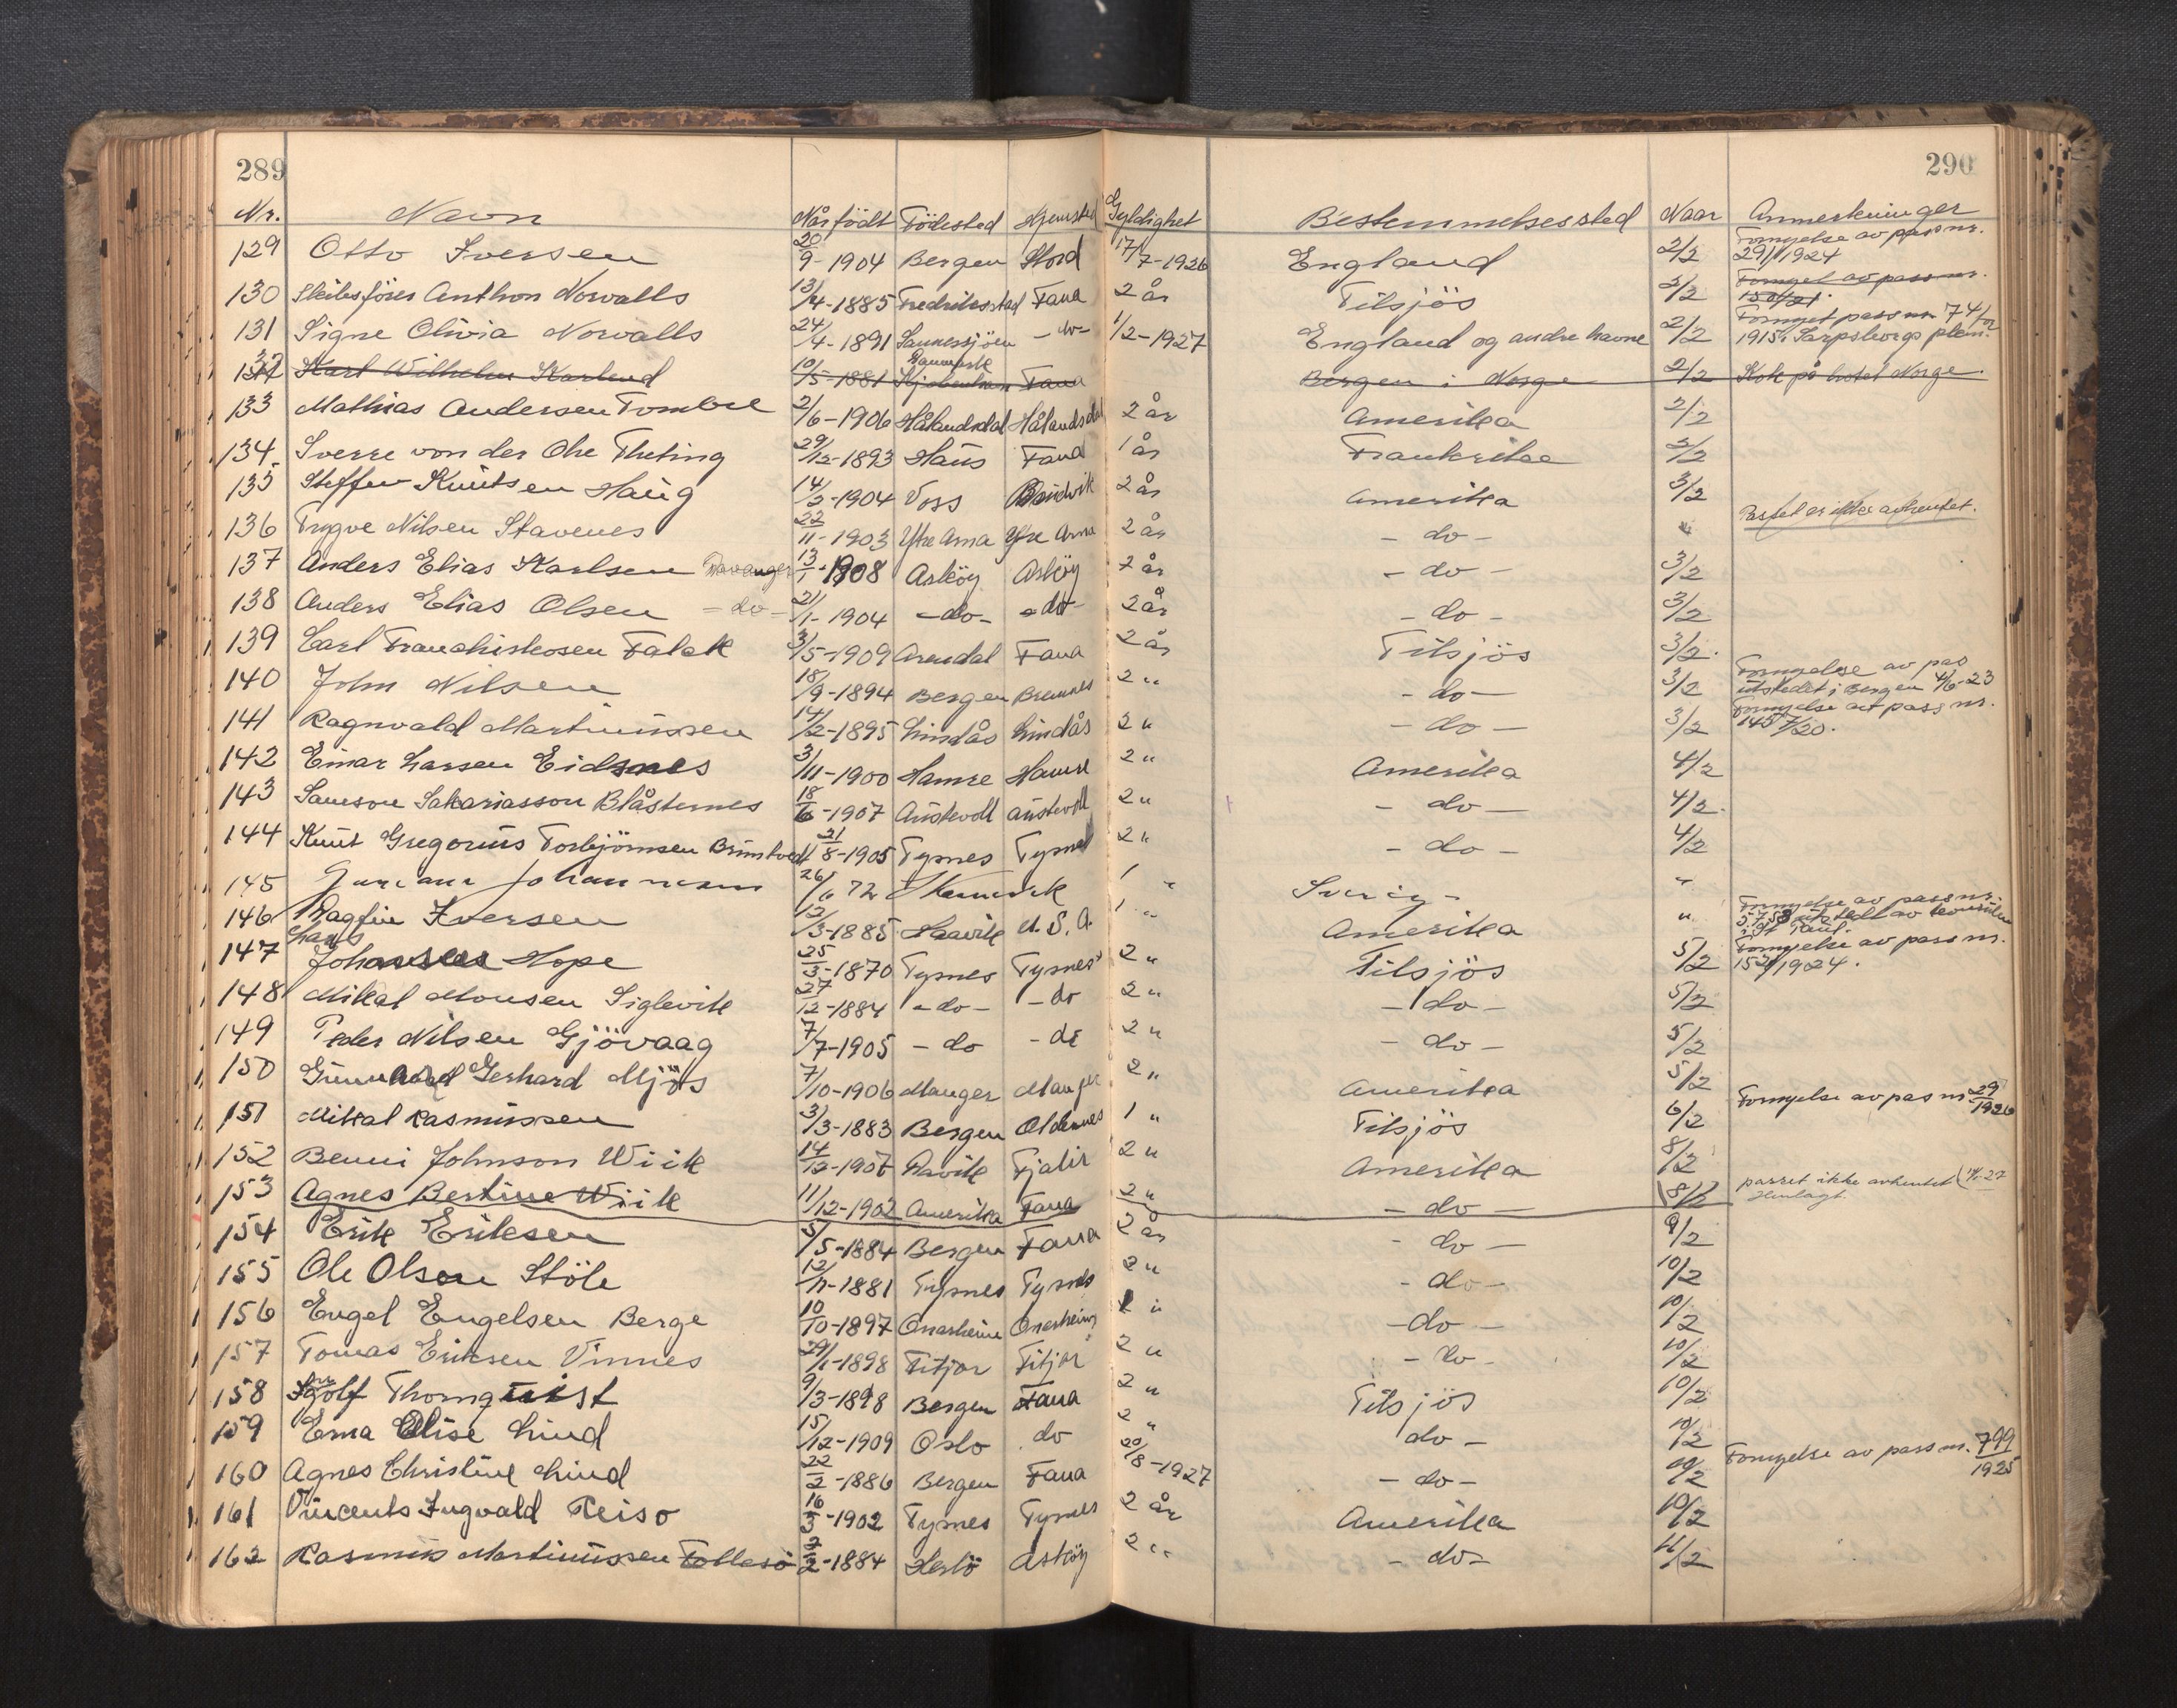 289
290
Nr. Navn Når födt Födested Hjemsted Gyldighet Bestemmelsessted Naar Anmerkninger
129 Otto Iversen 20/9-1904 Bergen Stord 17/7-1926 England 2/2 Fornyelse av pass nr. 291/1924
130 Skibsfører Anthon Norvalls 13/4-1885 Fredrikstad Fana 2 år Tilsjös 2/2 Fornyet av pass nr.
131 Signe Olivia Norvalls 24/4-1891 Sannessjöen -do- 1/2-1927 England og andre havne 2/2 Fornyet pass nr 74 for 1915, Sarpsborgs
132 Karl Wilhelm Karlend 10/5-1881 Danmark Kjøbenhavn Fana Bergen i Norge 2/2 Kok på hotel Norge.
133 Mathias Andersen Tombre 2/6-1906 Hålandsdal Hålandsdal 2 år Amerika 2/2
134 Sverre von der Ohe Theting 29/12-1893 Haus Fana 1 år Frankrike 2/2
135 Steffen Knutsen Haug 14/2-1904 Voss Bruvik 2 år Amerika 3/2
136 Trygve Nilsen Stavenes 22/11-1903 Ytre Arna Ytre Arna 2 år - do - " Passet er ikke avhentet.
137 Anders Elias Karlsen Ravanger 13/1-1908 Asköy Asköy 2 år - do - 3/2
138 Anders Elias Olsen - do - 21/1-1904 -do- -do- 2 år - do - 3/2
139 Carl Franchiskosen Falck 3/5-1909 Arendal Fana 2 år Tilsjös 3/2.
140 John Nilsen 18/9-1894 Bergen Bremnes 2 " - do - 3/2 Fornyelse av pas utstedet i Bergen 4/6-23
141 Ragnvald Martinussen 14/2-1895 Lindås Lindås 2 " - do - 3/2 Fornyelse av pass nr. 1457/20.
142 Einar Larsen Eidsnes 3/11-1900 Hamre Hamre 2 " Amerika 4/2
143 Samson Sakariasson Blåsternes 18/6-1907 Austevoll Austevoll 2 " - do - 4/2.
144 Knut Gregorius Torbjörnsen Brimtvedt 21/8-1905 Tysnes Tysnes 2 " - do - 4/2
145 Johannesen 26/6 72 1 " Sverig- "
146 Dagfin Iversen 12/3-1885 Haavik U.S.A. 1 " Amerika " Fornyelse av pass nr. 5758 utstedt av i St Paul.
147 Hans Johansen Hope 25/3-1870 Tysnes Tysnes 2 " Tilsjös 5/2 Fornyelse av pass nr. 152/1924.
148 Mikal Monsen Siglevik 27/12-1884 -do- -do 2 " - do - 5/2
149 Peder Nilsen Gjövaag 7/7-1905 - do - do 2 " - do - 5/2
150 Gunnar Gerhard Mjös 7/10-1906 Manger Manger 2 " Amerika 5/2
151 Mikal Rasmussen 3/3-1883 Bergen Oldernes 1 " Tilsjös 6/2 Fornyelse av pas nr. 29/1926
152 Benni Johnson Wiik 14/12-1907 Davik Fjalir 2 " Amerika 8/2
153 Agnes Bertine Wiik 11/12-1902 Amerika Fana 2 " - do - 8/2 passet ikke avhentet Henlagt.
154 Erik Eriksen 5/5-1884 Bergen Fana 2 år - do - 9/2
155 Ole Olson Stöle 12/11-1881 Tysnes Tysnes 2 " - do - 10/2
156 Engel Engelsen Berge 10/10-1897 Onarheim Onarheim " -do - 10/2
157 Tomas Eriksen Vinnes 29/1-1898 Fitjar Fitjar 2 " - do - 10/2
158 Ingolf Thornquist 9/3-1898 Bergen Fana 2 " Tilsjös 10/2
159 Erna Elise Lind 15/12-1909 Oslo do 2 " do - 10/2
160 Agnes Christine Lind 22/2-1886 Bergen Fana 20/8-1927 - do - 10/2 Fornyelse av pass nr. 799/1925
161 Vincents Ingvald Reiso 16/3-1902 Tysnes Tysnes 2 år Amerika 10/2
162 Rasmus Martinussen Follesö 2/2-1884 Herlö Asköy 2 " - do - 11/2